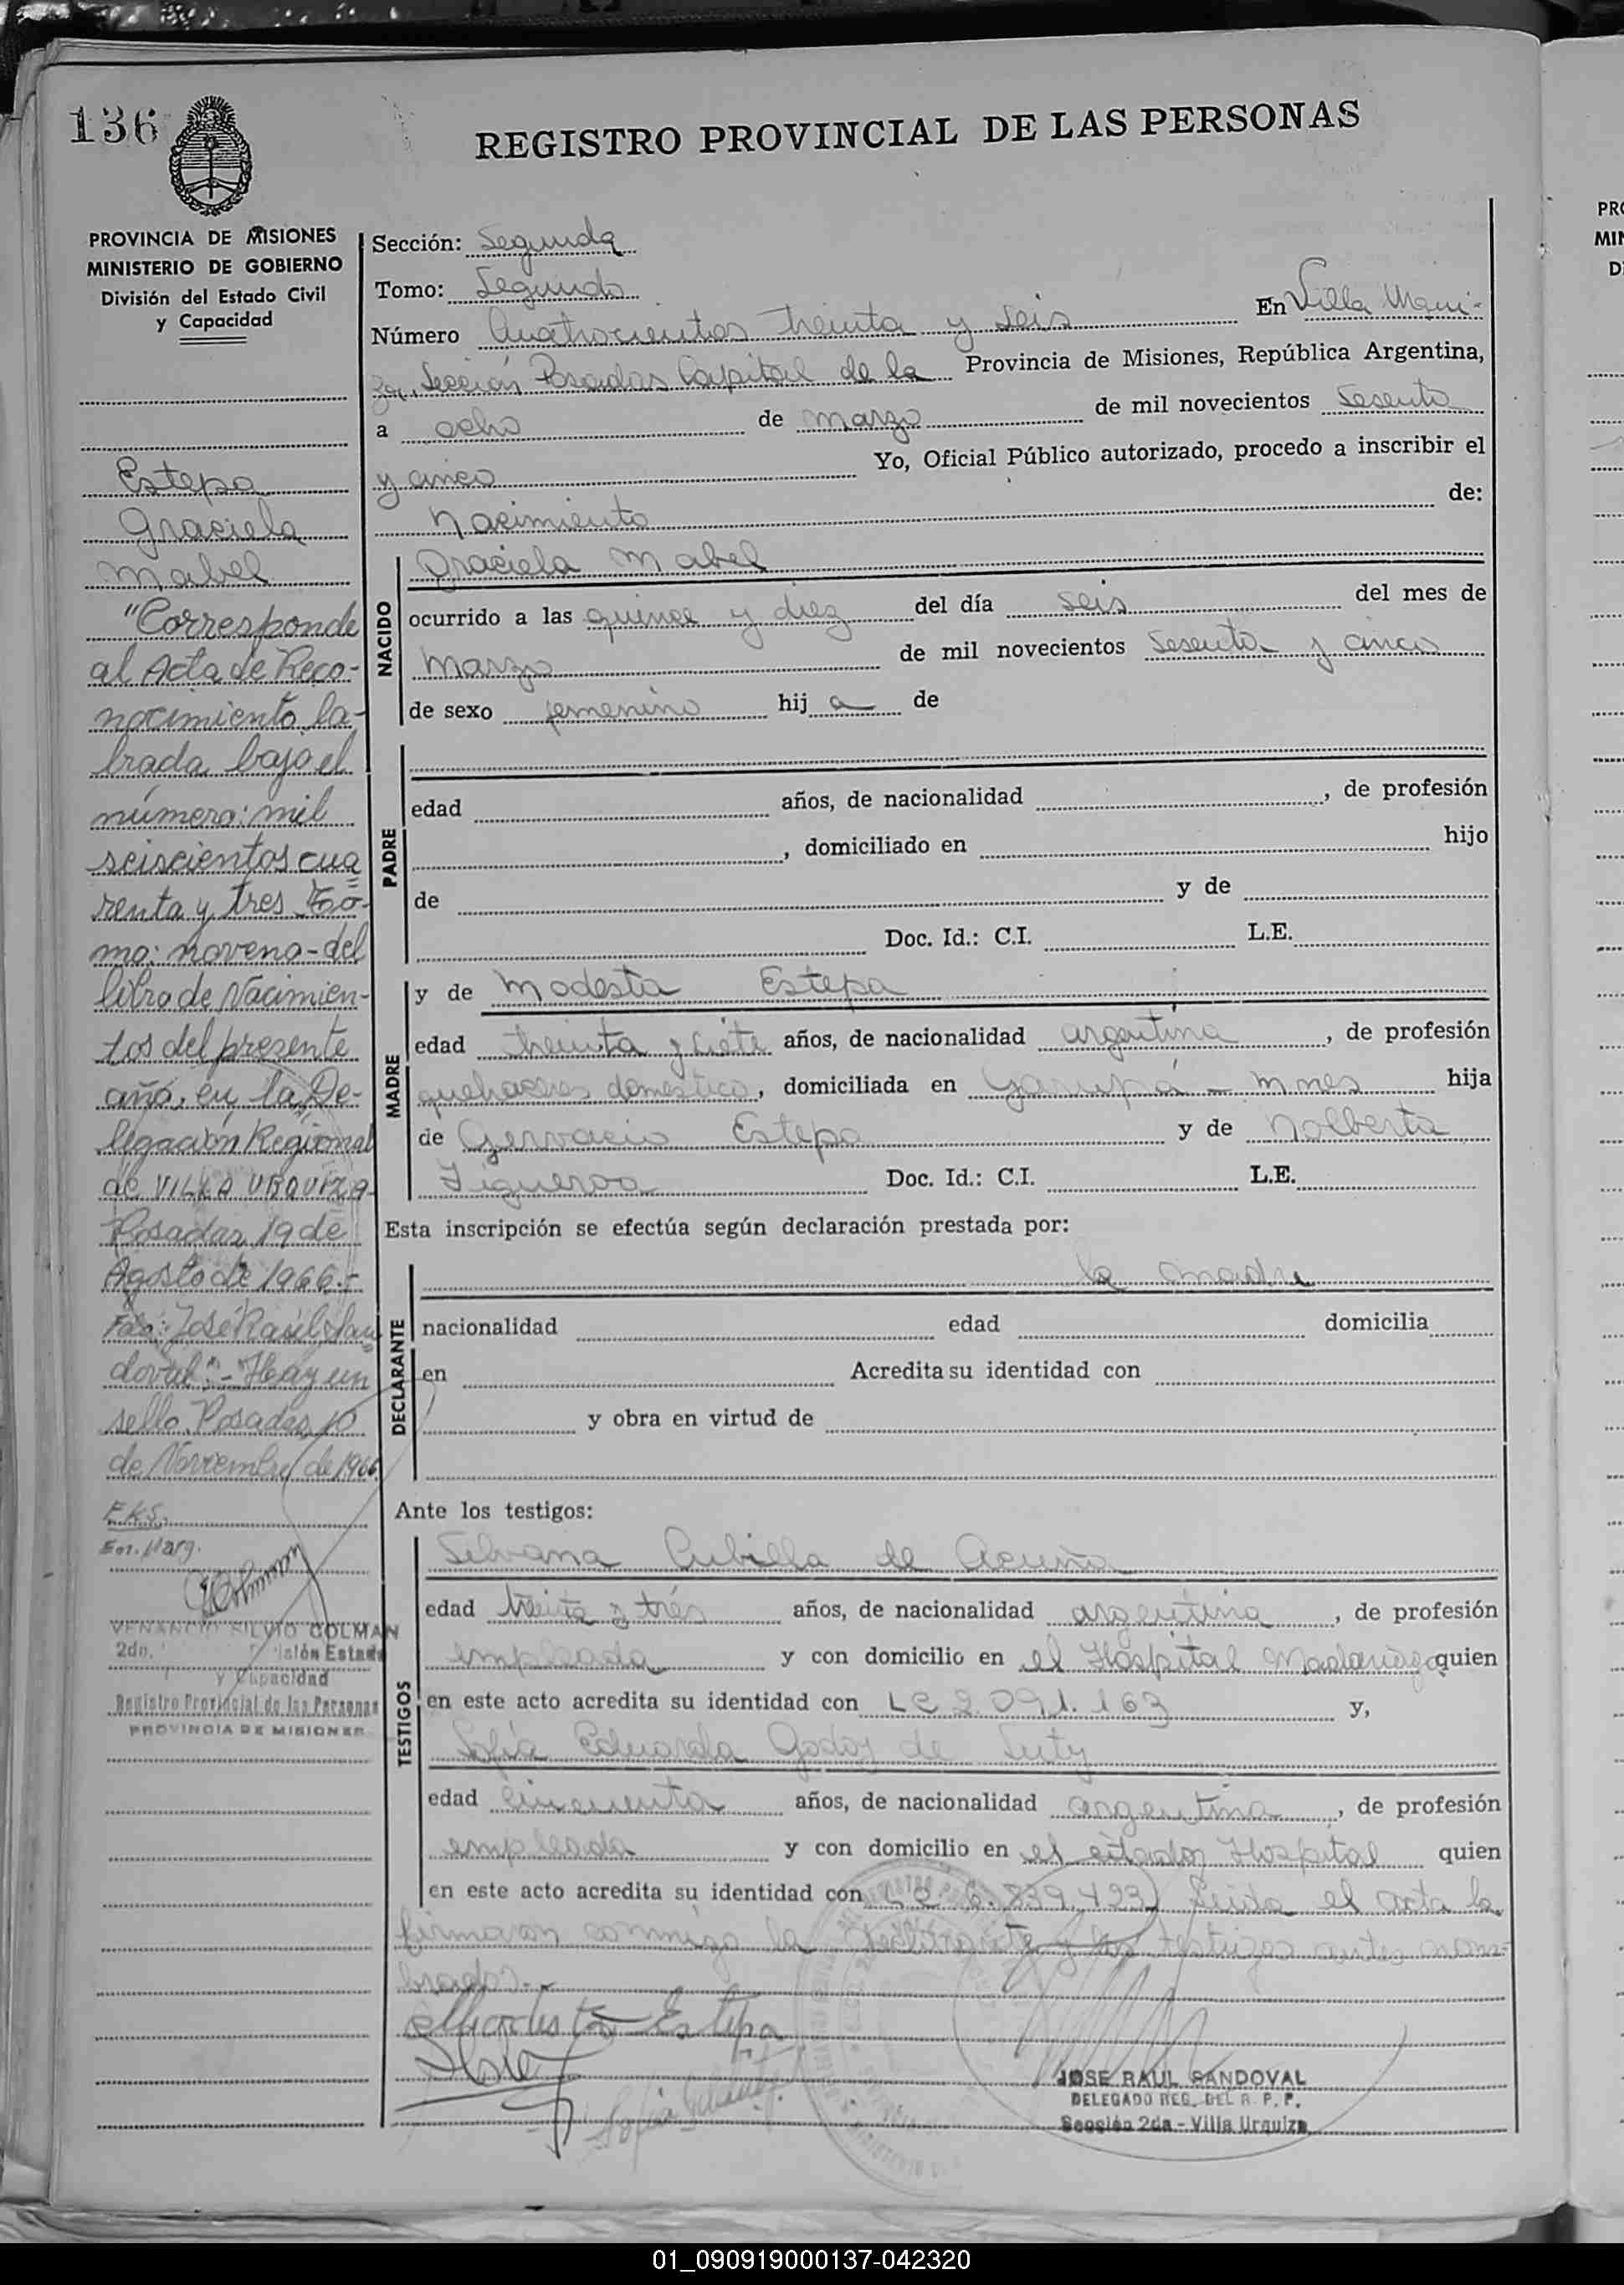 136
REGISTRO PROVINCIAL DE LAS PERSONAS
PROVINCIA DE MISIONES
MINISTERIO DE GOBIERNO
División del Estado Civil
y Capacidad
Estepa
Graciela
Mabel
"Corresponde
al Acta de Reco-
nocimiento la-
brada bajo el
número: mil
seiscientos cua
renta y tres To-
mo: noveno-del
libro de Nacimien-
tos del presente
año, en la De-
legación Regional
de VILLA URQUIZA-
Posadas, 19 de
Agosto de 1966.-
Fdo: José Raúl San
doval".- Hay un
sello. Posadas, 10
de Noviembre de 1966
E.K.S.
Enc. Marg.
VENANCIO SILVIO COLMAN
2do. Estado
y Capacidad
Registro Provincial de las Personas
PROVINCIA DE MISIONES
Sección: Segunda
Tomo: Segundo
Número Cuatrocientos treinta y seis En Villa Urqui-
za, Sección Posadas Capital de la Provincia de Misiones, República Argentina,
a ocho de marzo de mil novecientos sesenta
y cinco Yo, Oficial Público autorizado, procedo a inscribir el
nacimiento de:
NACIDO
Graciela Mabel
ocurrido a las quince y diez del día seis del mes de
marzo de mil novecientos sesenta y cinco
de sexo femenino hij a de
PADRE
edad años, de nacionalidad , de profesión
, domiciliado en hijo
de y de
Doc. Id.: C.I. L.E.
MADRE
y de Modesta Estepa
edad treinta y siete años, de nacionalidad argentina , de profesión
quehaceres domestico, domiciliada en Garupá - Mnes hija
de Gervacio Estepa y de Nolberta
Figueroa Doc. Id.: C.I. L.E.
Esta inscripción se efectúa según declaración prestada por:
DECLARANTE
la madre
nacionalidad edad domicilia
en Acredita su identidad con
y obra en virtud de
Ante los testigos:
TESTIGOS
Silvana Cubilla de Acuña
edad treinta y trés años, de nacionalidad argentina , de profesión
empleada y con domicilio en el Hospital Madariaga quien
en este acto acredita su identidad con LC 2.091.163 y,
Sofía Eduarda Godoy de
edad cincuenta años, de nacionalidad argentina , de profesión
empleada y con domicilio en el citador Hospital quien
en este acto acredita su identidad con LC. 6.839.423) Leida el acta la
firmaron conmigo la declarante y los testigos antes nom-
brados.-
Modesta Estepa
JOSE RAUL SANDOVAL
DELEGADO REG. DEL R. P. P.
Sección 2da - Villa Urquiza
PR
MI
D
01_090919000137-042320